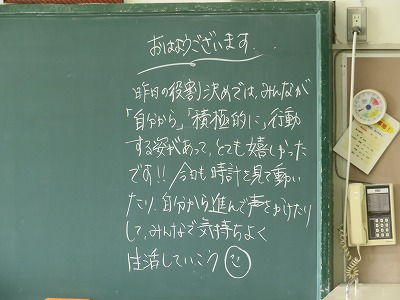 おはようございます.
昨日の役割決めでは、みんなが
「自分から」「積極的に」行動
する姿があって、とても嬉しかった
です!! 今日も時計を見て動い
たり、自分から進んで声をかけたり
して、みんなで気持ちよく
生活していこう